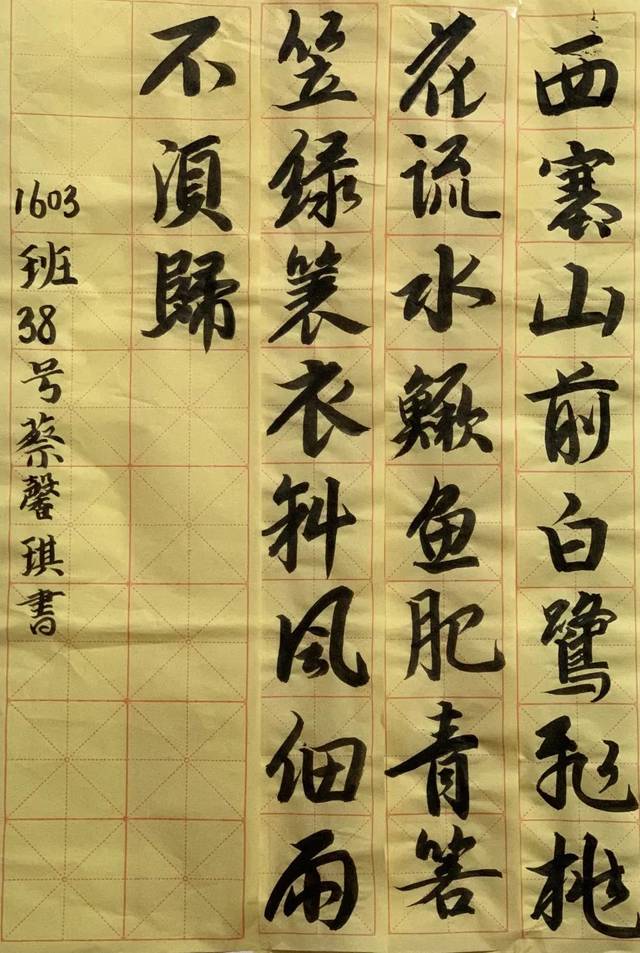 西塞山前白鹭飛桃
花流水鳜鱼肥青箬
笠绿蓑衣斜风细雨
不須歸
1603班38号蔡馨琪書